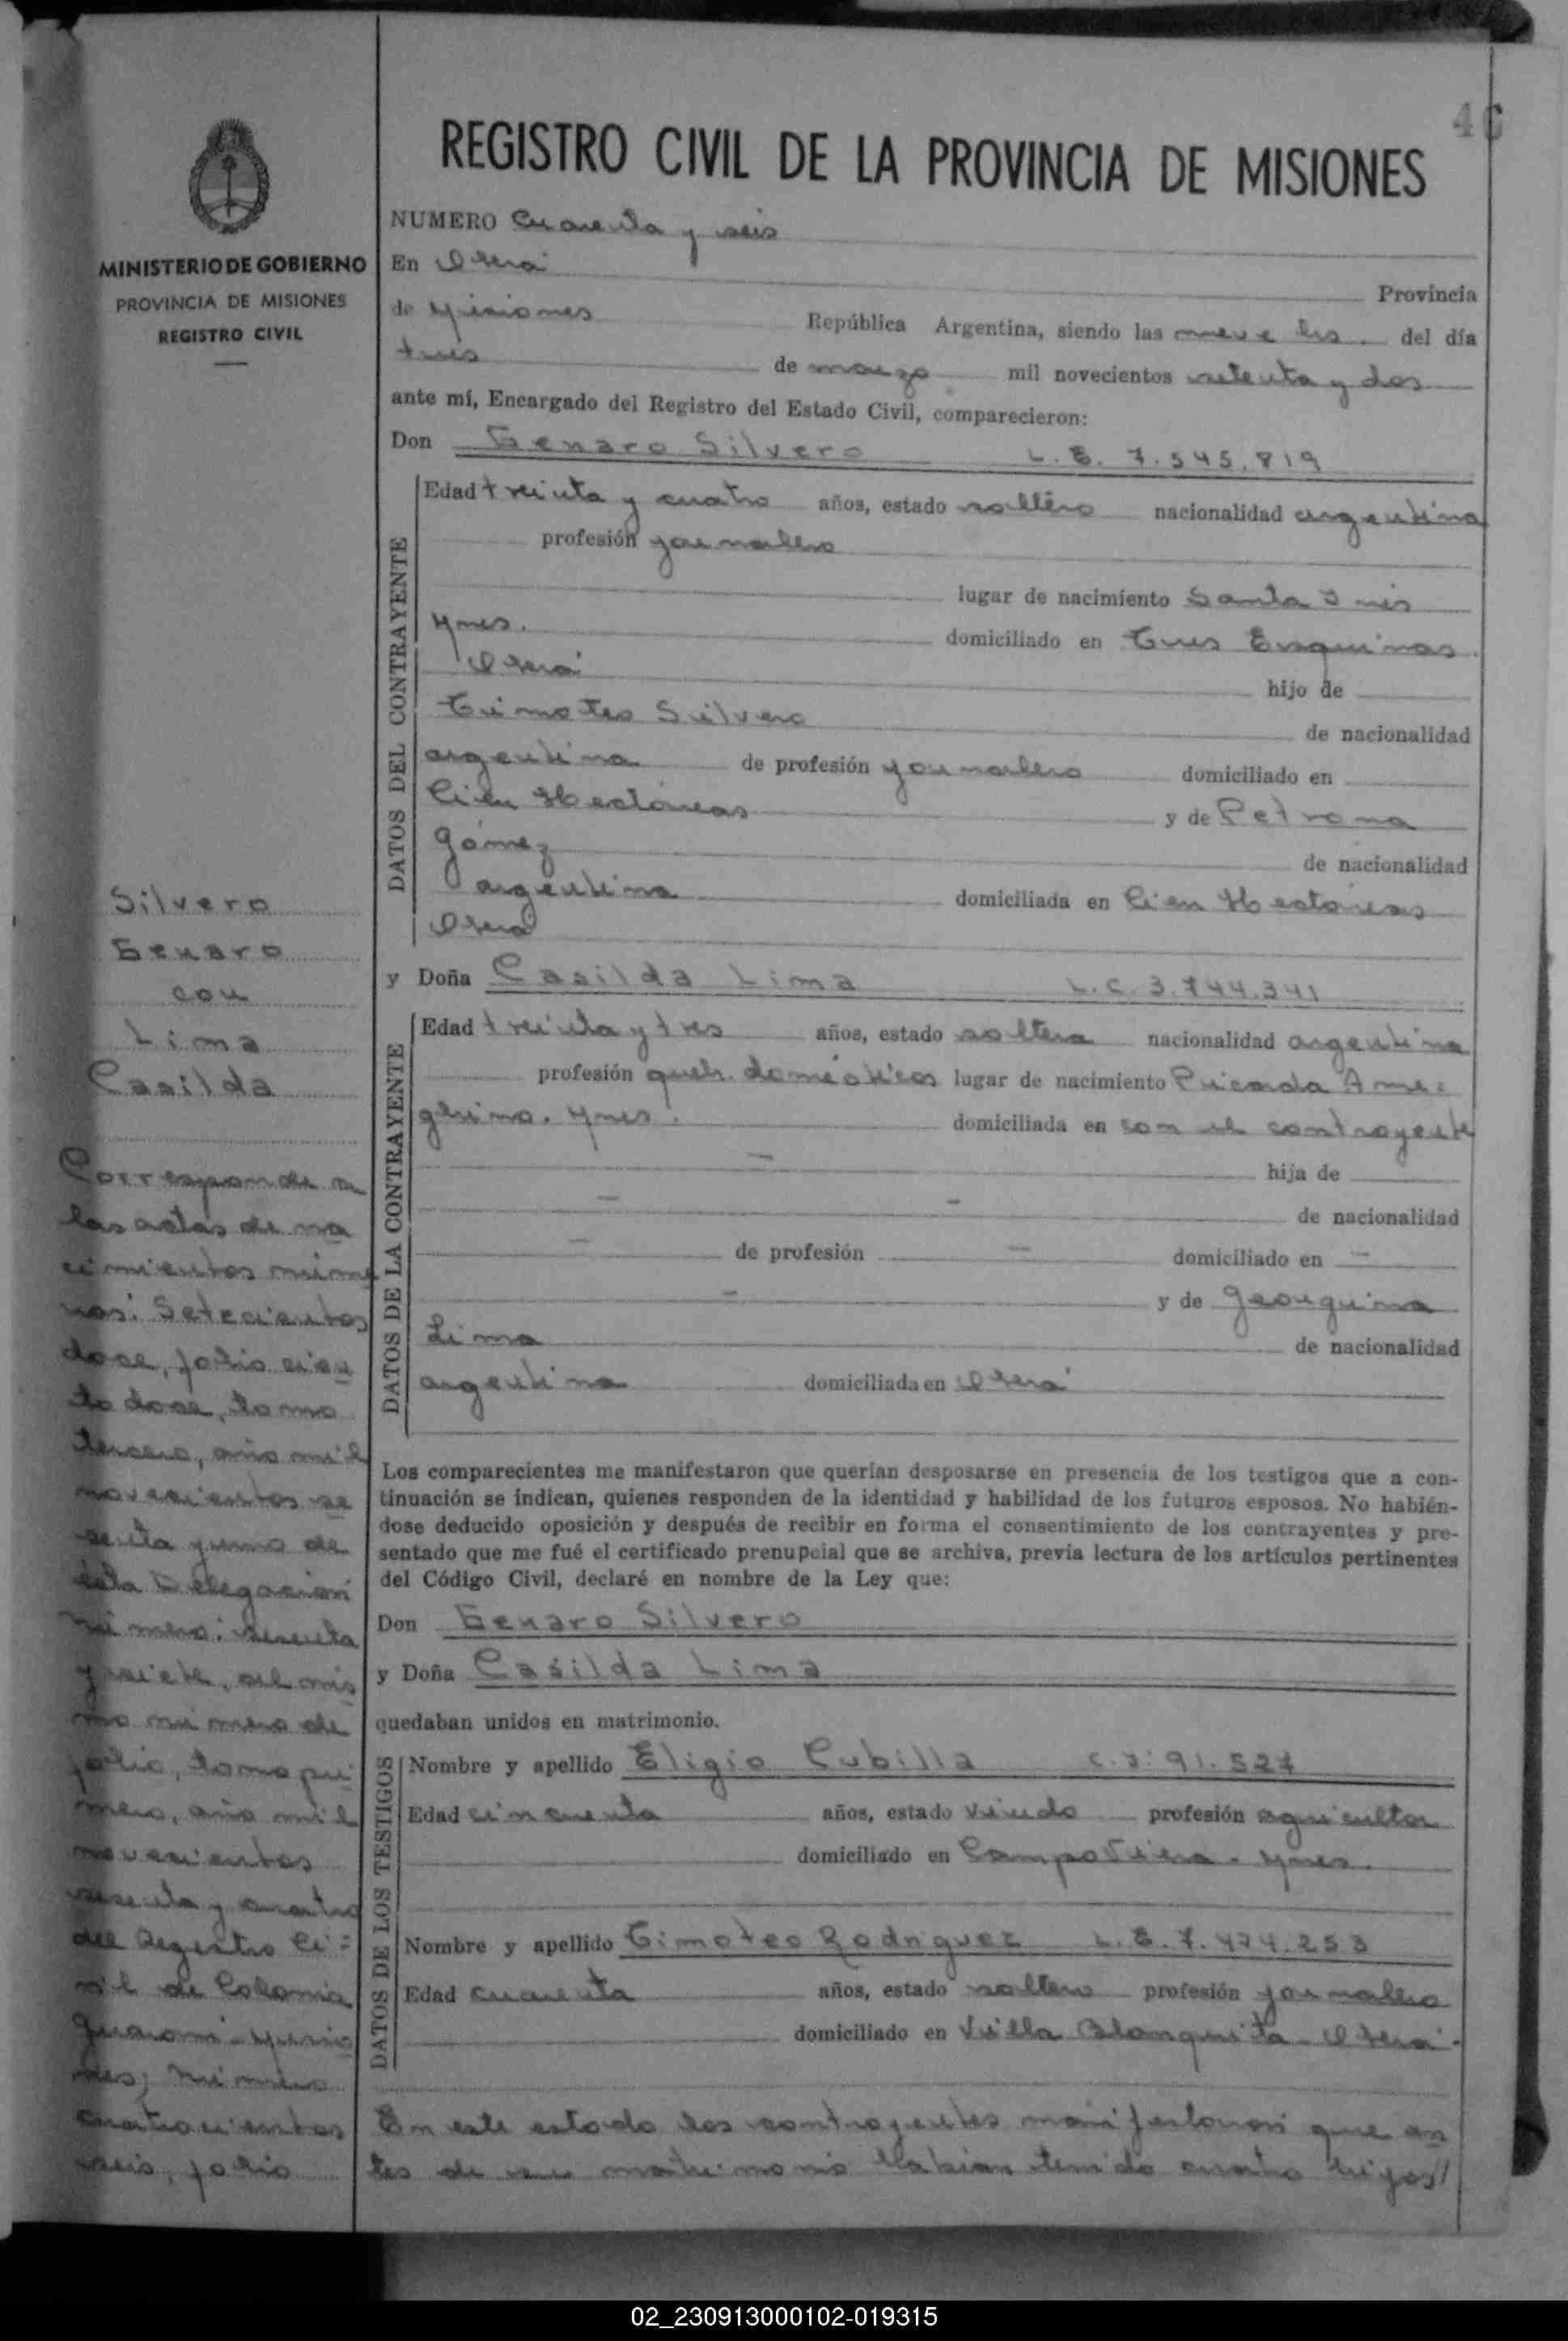 46
REGISTRO CIVIL DE LA PROVINCIA DE MISIONES
MINISTERIO DE GOBIERNO
PROVINCIA DE MISIONES
REGISTRO CIVIL
NUMERO Cuarenta y seis
En Oberá Provincia
de Misiones República Argentina, siendo las nueve hs. del día
tres de marzo mil novecientos setenta y dos
ante mí, Encargado del Registro del Estado Civil, comparecieron:
Don Genaro Silvero L.E. 7.545.819
DATOS DEL CONTRAYENTE
Edad treinta y cuatro años, estado soltero nacionalidad argentina
profesión jornalero
lugar de nacimiento Santa Inés
Mnes. domiciliado en Tres Esquinas
Oberá hijo de
Timoteo Silvero de nacionalidad
argentina de profesión jornalero domiciliado en
Cien Hectáreas y de Petrona
Gómez de nacionalidad
argentina domiciliada en Cien Hectáreas
Oberá
y Doña Casilda Lima L.C. 3.744.341
DATOS DE LA CONTRAYENTE
Edad treinta y tres años, estado soltera nacionalidad argentina
profesión queh. domésticos lugar de nacimiento Picada Ame-
ghino. Mnes. domiciliada en con el contrayente
hija de
de nacionalidad
de profesión domiciliado en
y de Georgina
Lima de nacionalidad
argentina domiciliada en Oberá
Los comparecientes me manifestaron que querían desposarse en presencia de los testigos que a con-
tinuación se indican, quienes responden de la identidad y habilidad de los futuros esposos. No habién-
dose deducido oposición y después de recibir en forma el consentimiento de los contrayentes y pre-
sentado que me fué el certificado prenupcial que se archiva, previa lectura de los artículos pertinentes
del Código Civil, declaré en nombre de la Ley que:
Don Genaro Silvero
y Doña Casilda Lima
quedaban unidos en matrimonio.
DATOS DE LOS TESTIGOS
Nombre y apellido Eligio Cubilla C.I: 91.527
Edad cincuenta años, estado viudo profesión agricultor
domiciliado en Campo Viera - Mnes.
Nombre y apellido Timoteo Rodríguez L.E. 7.474.253
Edad cuarenta años, estado soltero profesión jornalero
domiciliado en Villa Blanquita - Oberá.
En este estado los contrayentes manifestaron que an
tes de su matrimonio habían tenido cuatro hijos//
Silvero
Genaro
con
Lima
Casilda
Corresponde a
las actas de na
cimientos núme
ros: Setecientos
doce, folio cien
to doce, tomo
tercero, año mil
novecientos se
senta y uno de
ésta Delegación
número: sesenta
y siete, del mis
mo número de
folio, tomo pri
mero, año mil
novecientos
sesenta y cuatro
del Registro Ci-
vil de Colonia
Guaraní - Misio
nes; número
cuatrocientos
seis, folio
02_230913000102-019315